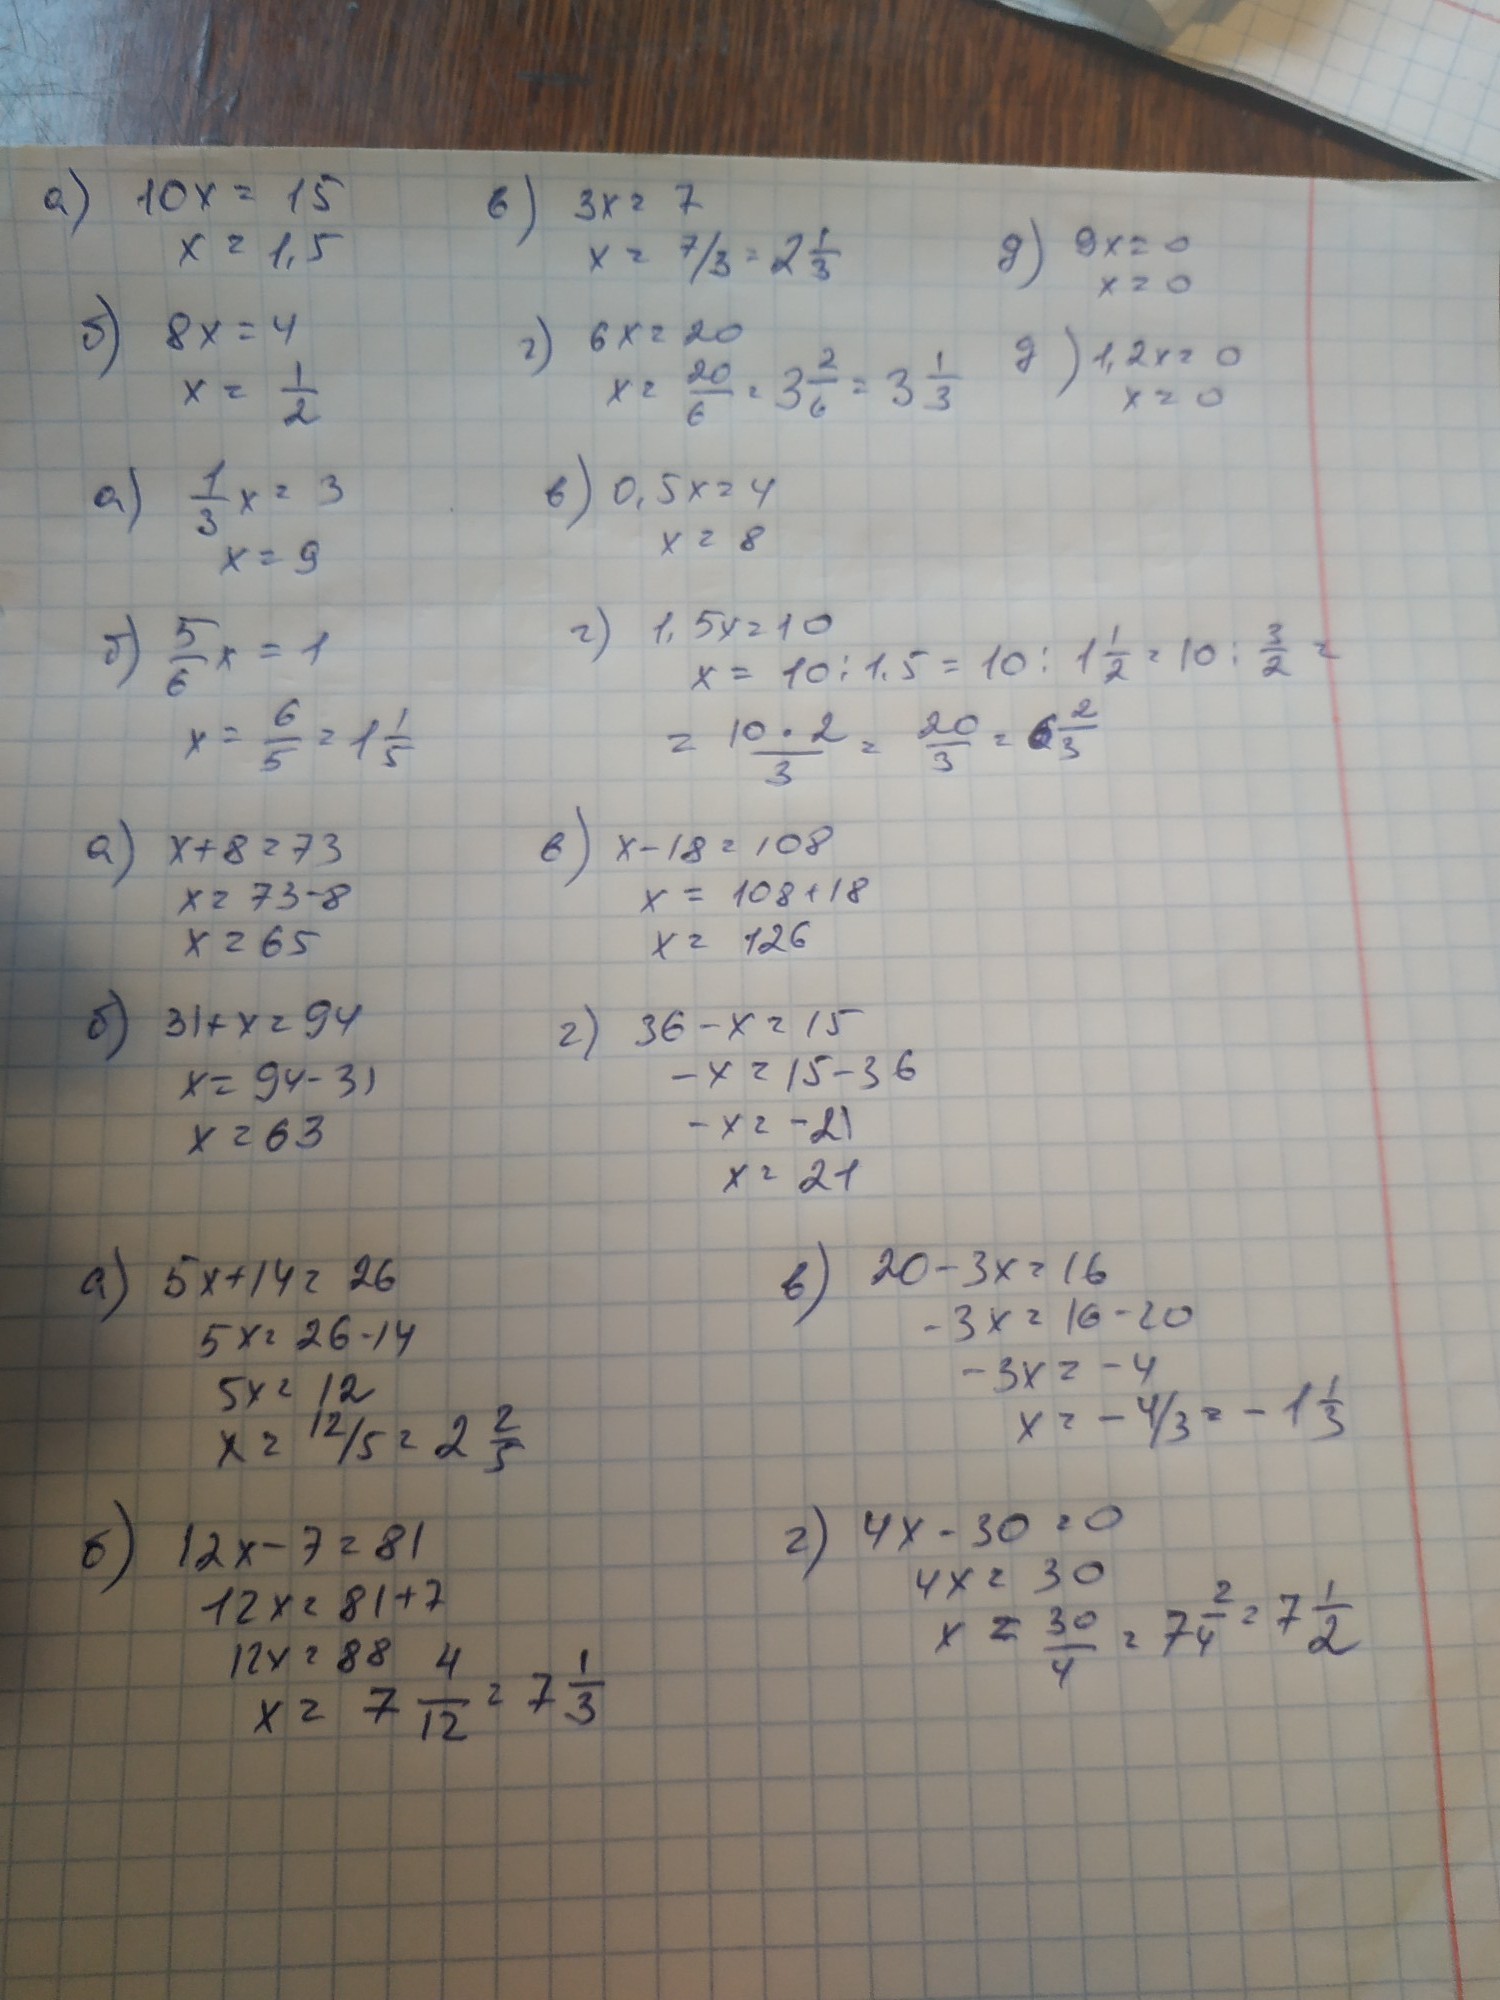 а) 10x = 15
x = 1,5
б) 8x = 4
x = 1/2
в) 3x = 7
x = 7/3 = 2 1/3
г) 6x = 20
x = 20/6 = 3 2/6 = 3 1/3
д) 9x = 0
x = 0
д) 1,2x = 0
x = 0
а) 1/3 x = 3
x = 9
б) 5/6 x = 1
x = 6/5 = 1 1/5
в) 0,5x = 4
x = 8
г) 1,5x = 10
x = 10 : 1,5 = 10 : 1 1/2 = 10 : 3/2 =
= 10 · 2/3 = 20/3 = 6 2/3
а) x + 8 = 73
x = 73 - 8
x = 65
б) 31 + x = 94
x = 94 - 31
x = 63
в) x - 18 = 108
x = 108 + 18
x = 126
г) 36 - x = 15
-x = 15 - 36
-x = -21
x = 21
а) 5x + 14 = 26
5x = 26 - 14
5x = 12
x = 12/5 = 2 2/5
б) 12x - 7 = 81
12x = 81 + 7
12x = 88
x = 7 4/12 = 7 1/3
в) 20 - 3x = 16
-3x = 16 - 20
-3x = -4
x = -4/3 = -1 1/3
г) 4x - 30 = 0
4x = 30
x = 30/4 = 7 2/4 = 7 1/2